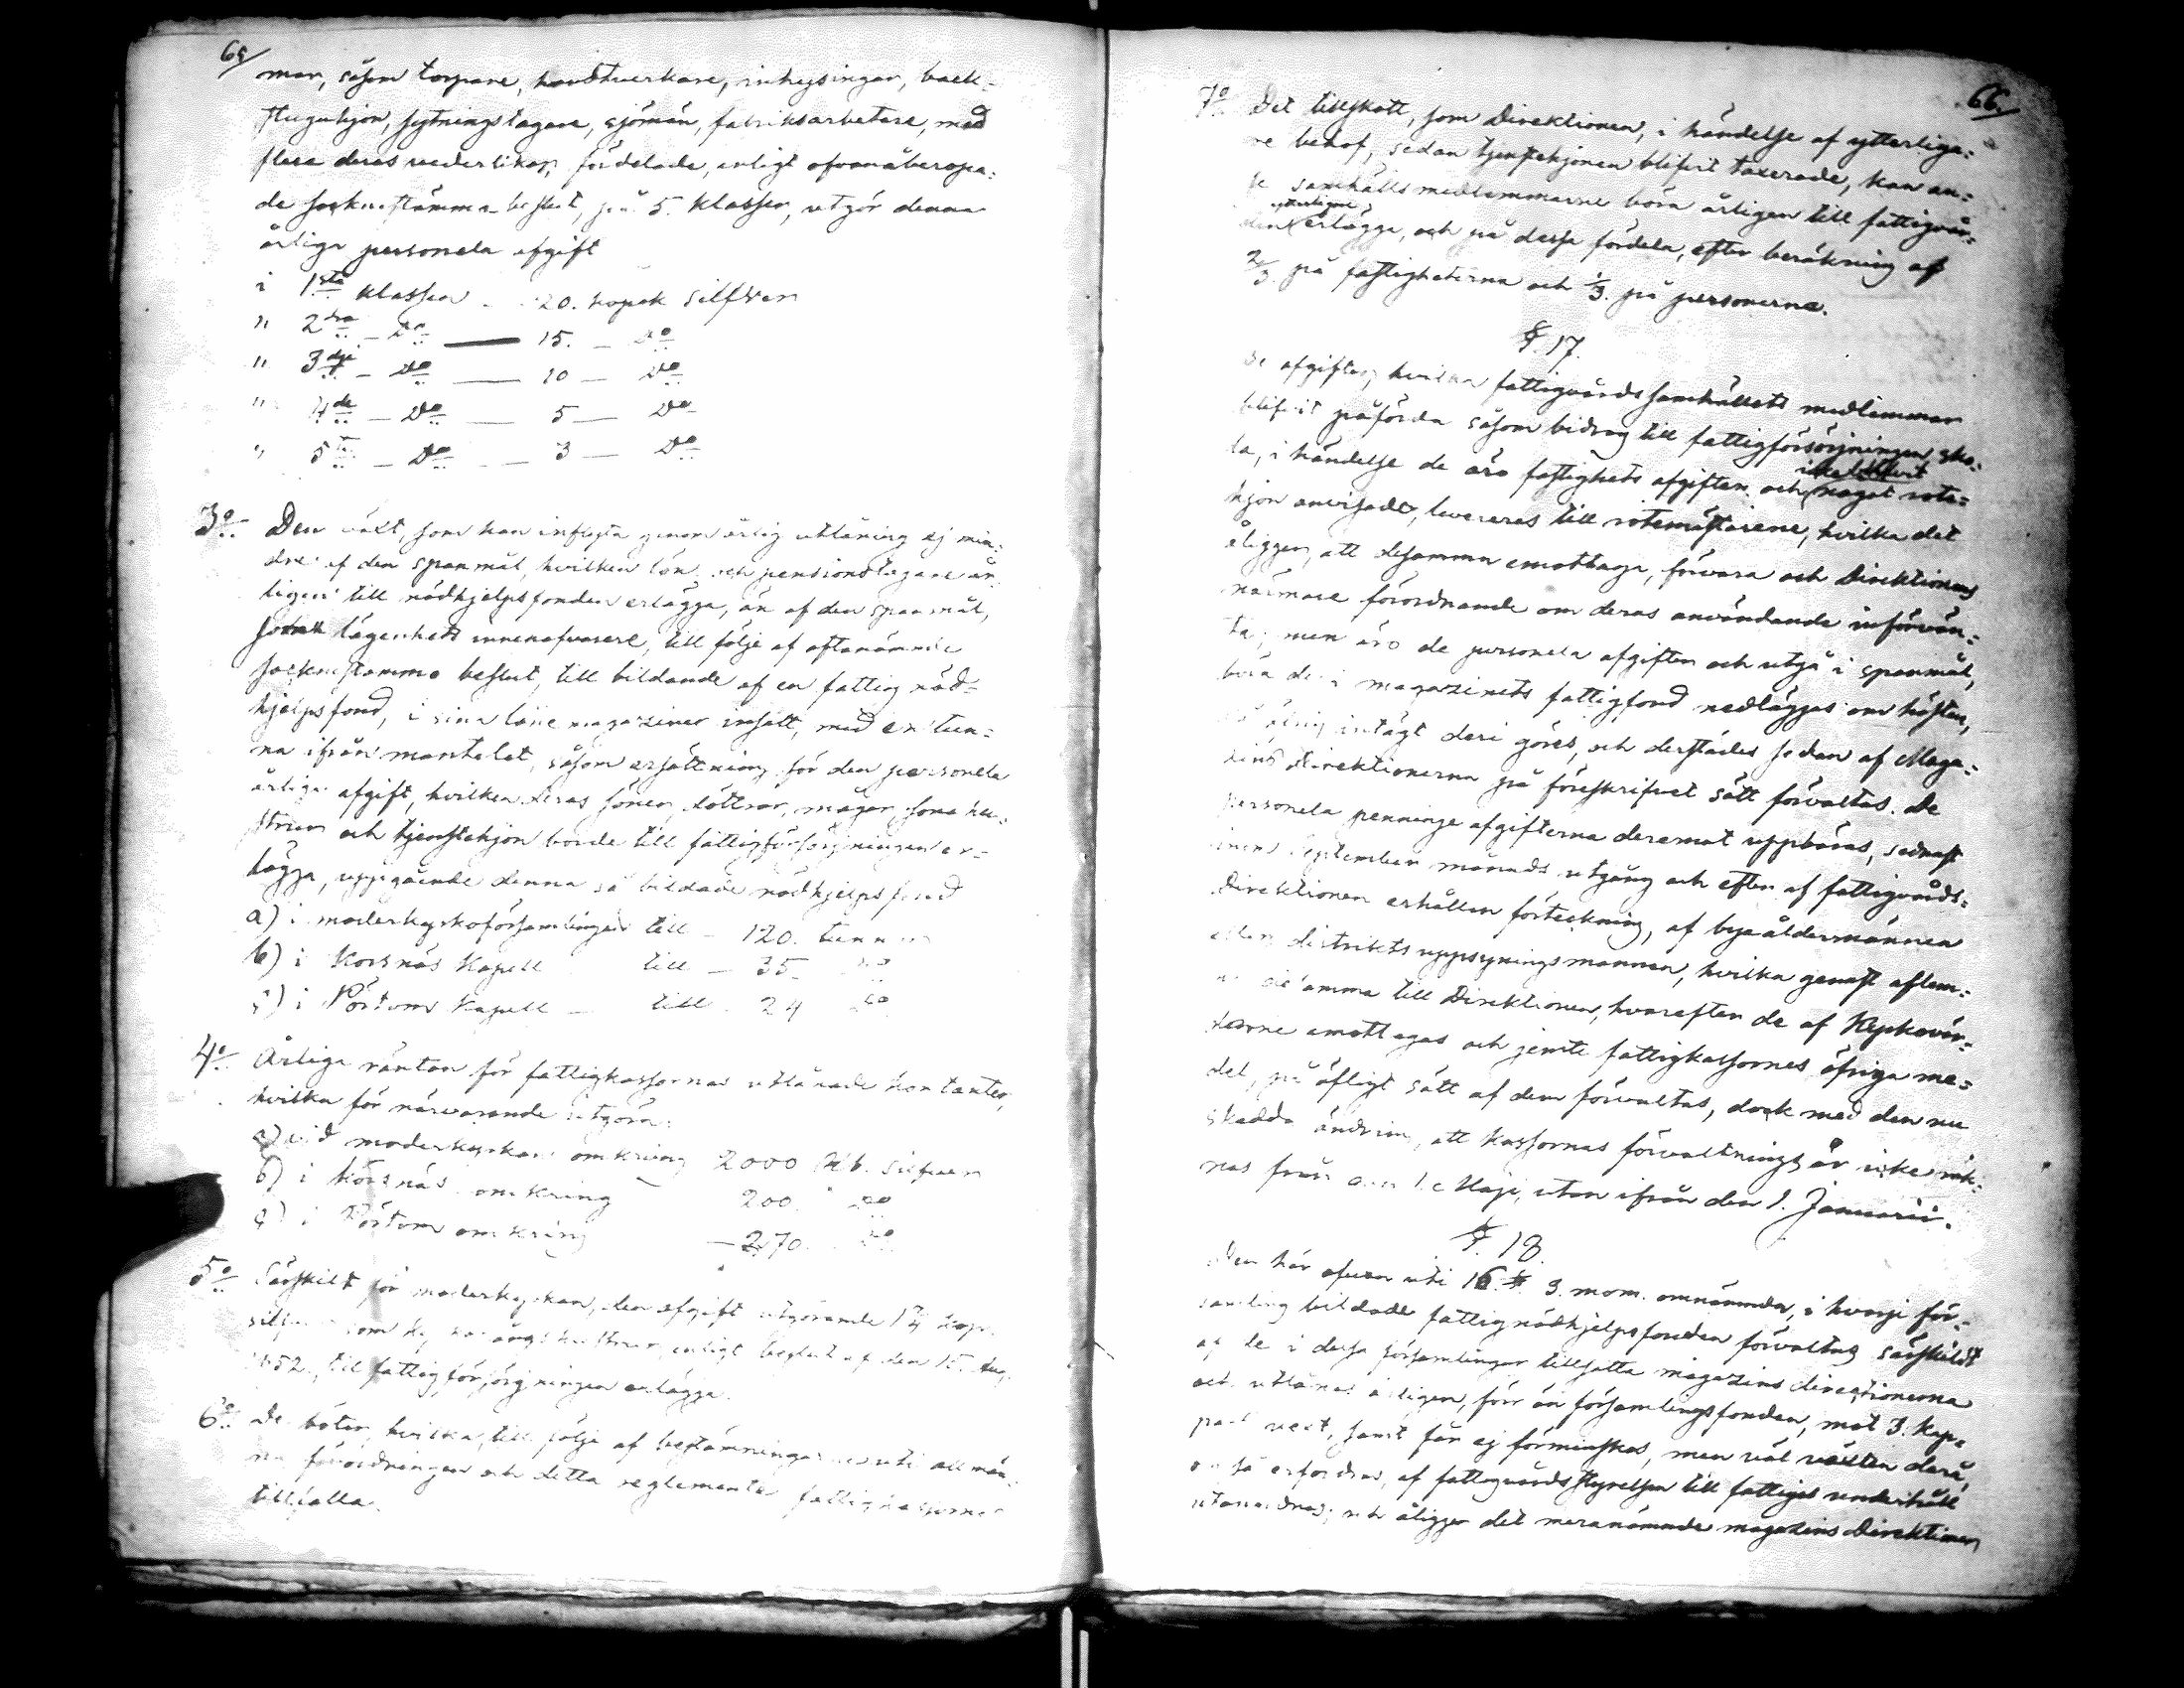 65/
mar, såsom torpare, handtverkare, inhysingar, back-
stuguhjon, sytningstagare, sjömän, fabriksarbetare, med
flere deras vederlikar, fördelade, enligt ofvanåberopa-
de sockenstämmo-beslut, på 5. klasser, utgör denna
årliga personela afgift
i 1sta klassen - - 20. kopek silfver
" 2dra - Do — 15. - Do
" 3dje - Do — 10 — Do
" 4de - Do — 5 — Do
" 5te - Do - - 3 — Do
3o Den växt, som kan inflyta genom årlig utlåning ej min-
dre af den spanmål, hvilken lön och pensionstagare år-
ligen till nödhjelpsfonden erlägga, än af den spanmål,
som lägenhets innehafvarere, till följe af oftanämnde
sockenstämmo beslut, till bildande af en fattig nöd-
hjelpsfond, i sina låne magaziner insatt, med en tun-
na ifrån mantalet, såsom ersättning för den personela
årliga afgift, hvilken deras söner, döttrar, mågar, sona hu-
strur och tjenstehjon borde till fattigförsörjningen er-
lägga, uppgående denna så bildade nödhjelpsfond
a) i moderkyrkoförsamlingen till - 120. tunnor
b) i Korsnäs Kapell till - 35 - Do
c) i Pörtom Kapell - till - 24 Do
4o Årliga räntan för fattigkassornas utlånade kontanter,
hvilka för närvarande utgöra:
a) vid moderkyrkan omkring 2000 Rb. Silfver
b) i Korsnäs omkring 200. Do
c) i Pörtom omkring - 270. Do
5o Särskilt för moderkyrkan, den afgift utgörande 1 4/7 kop.
silfver som enligt beslut af den 15.
1852., till fattigförsörjningen erlägga.
6o De böter, hvilka, till följe af bestämningarne uti allmän-
na förordningen och detta reglemente fattigkassorna
tillfalla.
66
7o Det tillskott, som Direktionen, i händelse af ytterliga-
re behof, sedan tjenstehjonen blifvit taxerade, kan an-
se samhällsmedlemmarne böra årligen till fattigvår-
ytterligare
den erlägga, och på dessa fördela, efter beräkning af
2/3. på fastigheterna och 1/3. på personerna.
§. 17.
De afgifter, hvilka fattigvårdssamhällets medlemmar
blifvit påförda såsom bidrag till fattigförsörjningen, sko-
la, i händelse de äro fastighets afgifter och något rote-
hjon anvisadt, levereras till rotemästarene, hvilka det
åligger, att desamma emottaga, förvara och Direktionens
närmare förordnande om deras användande införvän-
ta; men äro de personela afgifter och utgå i spanmål,
böra de i magazinets fattigfond nedläggas om hösten,
då årlig intägt deri göres, och derstädes sedan af Maga-
zins direktionerna på föreskrifvet sätt förvaltas. De
personela penninge afgifterna deremot uppbäras, sednast
innan September månads utgång och efter af fattigvårds-
Direktionen erhållen förteckning, af byaåldermännen
eller distrikts uppsyningsmannen, hvilka genast aflem-
na desamma till Direktionen, hvarefter de af Kyrkovär-
darne emottagas och jemte fattigkassornes öfriga me-
del, på öfligt sätt af dem förvaltas, dock med den nu
skedda ändring, att kassornas förvaltningsår icke räk-
nas från den 1e Maji, utan ifrån den 1. Januarii.
§. 18.
Den här ofvan uti 16. §. 3. mom. omnämnda, i hvarje för-
samling bildade fattignödhjelpsfonden förvaltas särskildt
af de i dessa församlingar tillsatta magazins direktionerna
och utlånas årligen, förr än församlingsfonden, mot 3. kap-
pars vext, samt får ej förminskas, men väl växten derå,
om så erfordras, af fattigvårdsstyrelsen till fattiges underhåll
utanordnas; och åligger det meranämnde magazins Direktioner